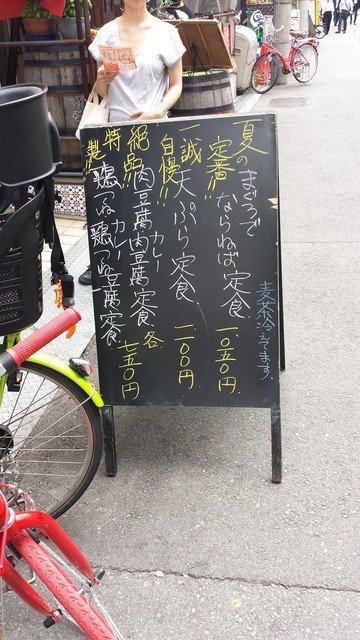 夏の定番!!
まぐろでならねば定食 一〇五〇円
麦茶冷えてます
一誠自慢!!
天ぷら定食 一一〇〇円
絶品!!
肉豆腐肉豆腐定食 各
カレー
特製
鶏つね鶏つね豆腐定食 七五〇円
カレー